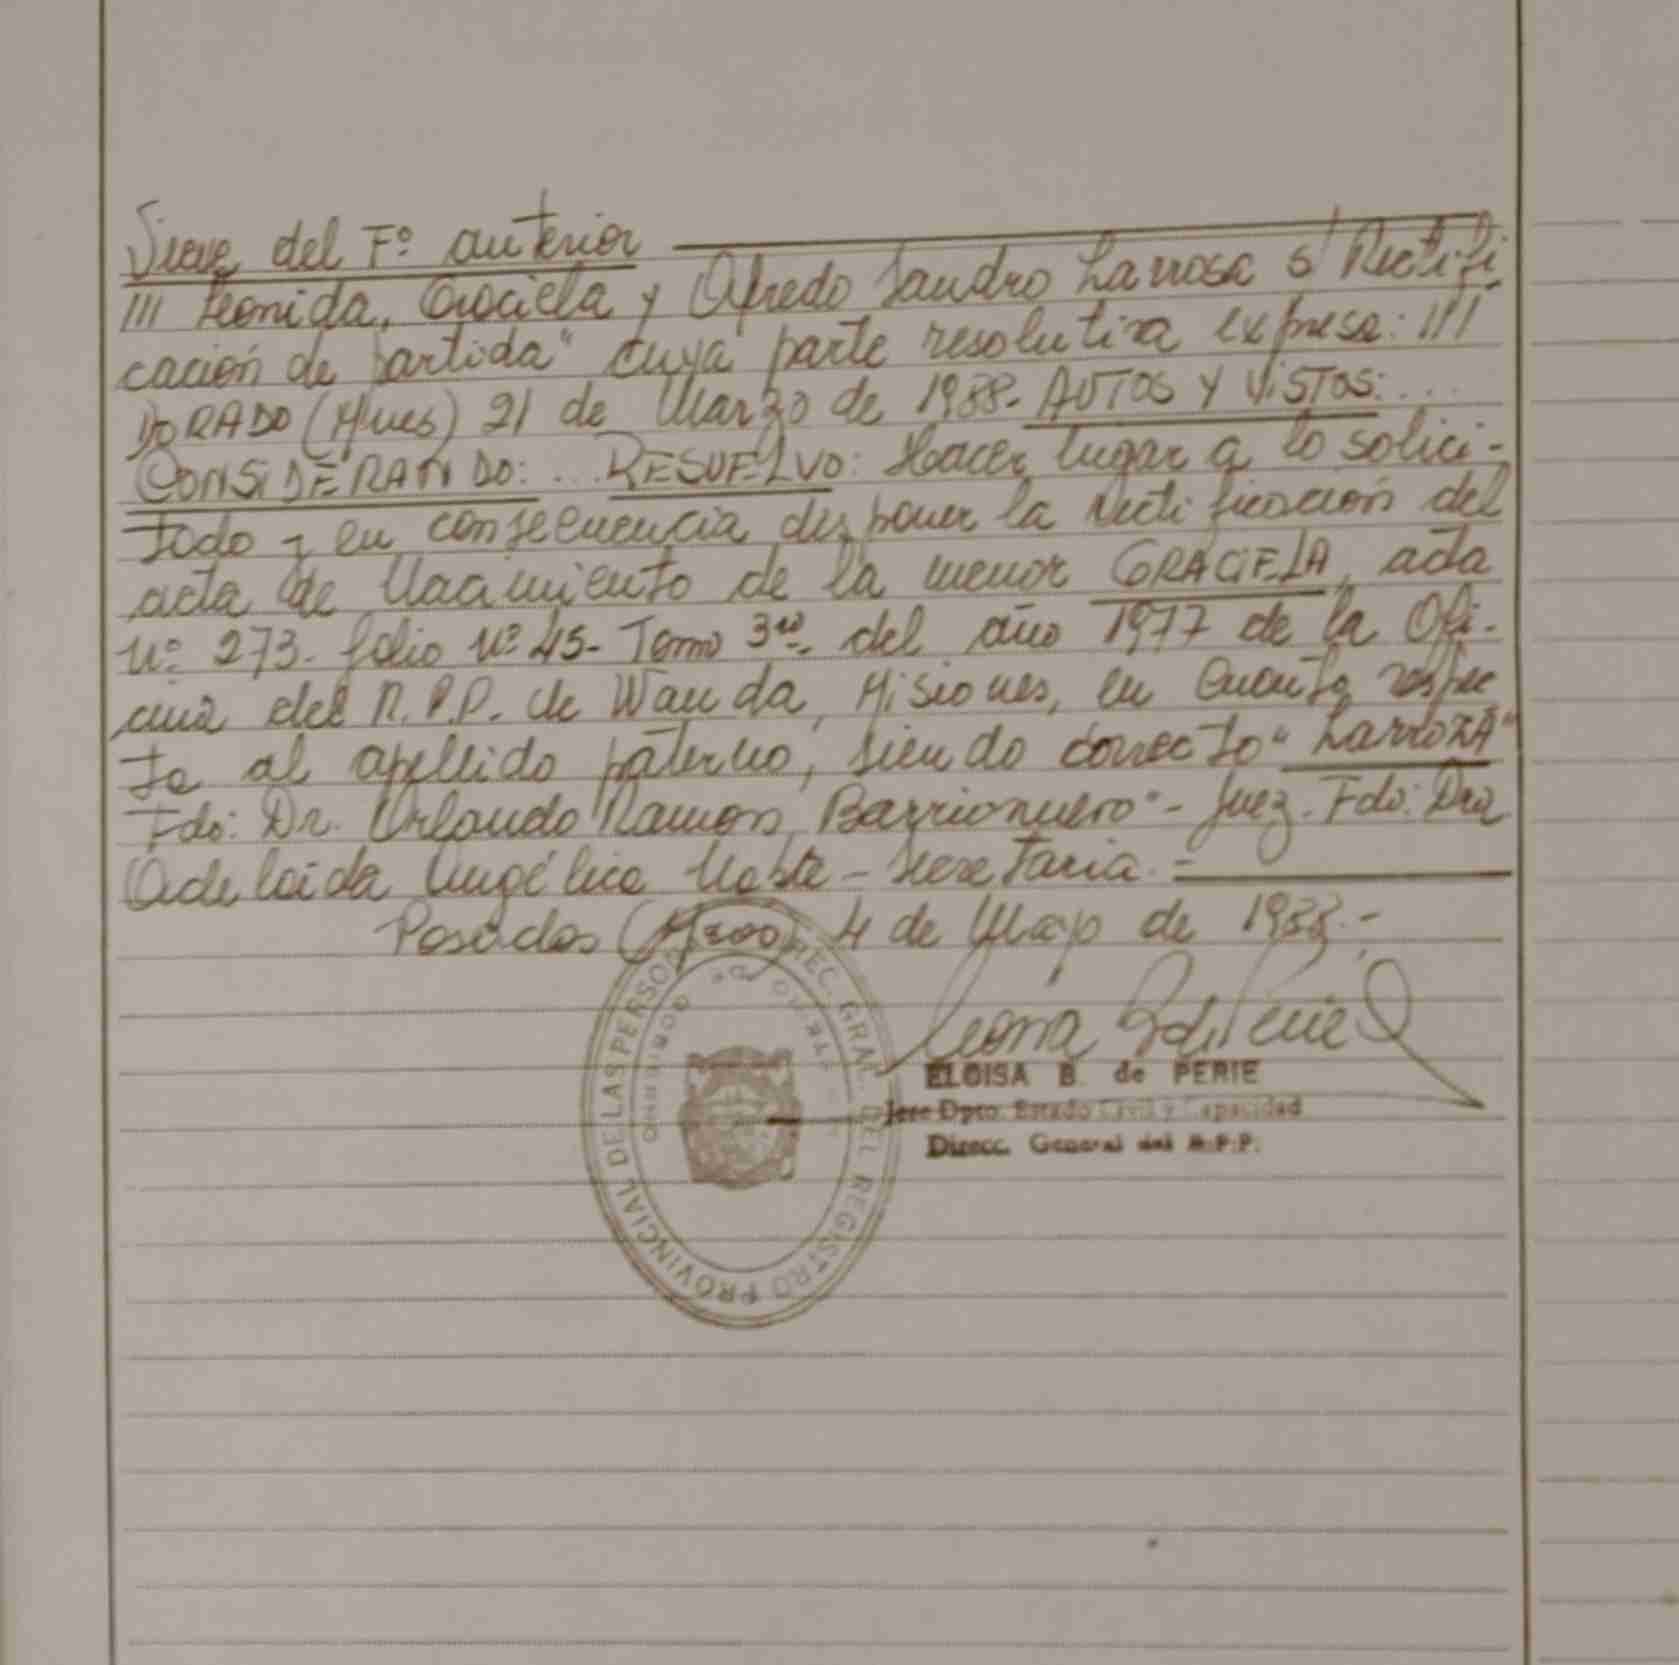 Viene del Fº anterior
/// Leonida, Graciela y Alfredo Sandro Larrosa s/ Rectifi
cación de partida" cuya parte resolutiva expresa: ///
DORADO (Mnes) 21 de Marzo de 1988- AUTOS Y VISTOS: ...
CONSIDERANDO: ... RESUELVO: Hacer lugar a lo solici-
tado y en consecuencia disponer la rectificación del
acta de Nacimiento de la menor GRACIELA, acta
Nº 273- folio Nº 45- Tomo 3ro- del año 1977 de la Ofi-
cina del R.P.P. de Wanda, Misiones, en cuanto respec
ta al apellido paterno, siendo correcto "LarroZA"
Fdo: Dr. Orlando Ramon Barrionuevo - Juez. Fdo: Dra
Adelaida Angélica - Secretaria. -
Posadas 4 de Mayo de 1988.-
ELOISA B. de PERIE
Jefe Dpto. Estado Civil y Capacidad
Direcc. General del R.P.P.
DIREC. GRAL. DEL REGISTRO PROVINCIAL DE LAS PERSONAS